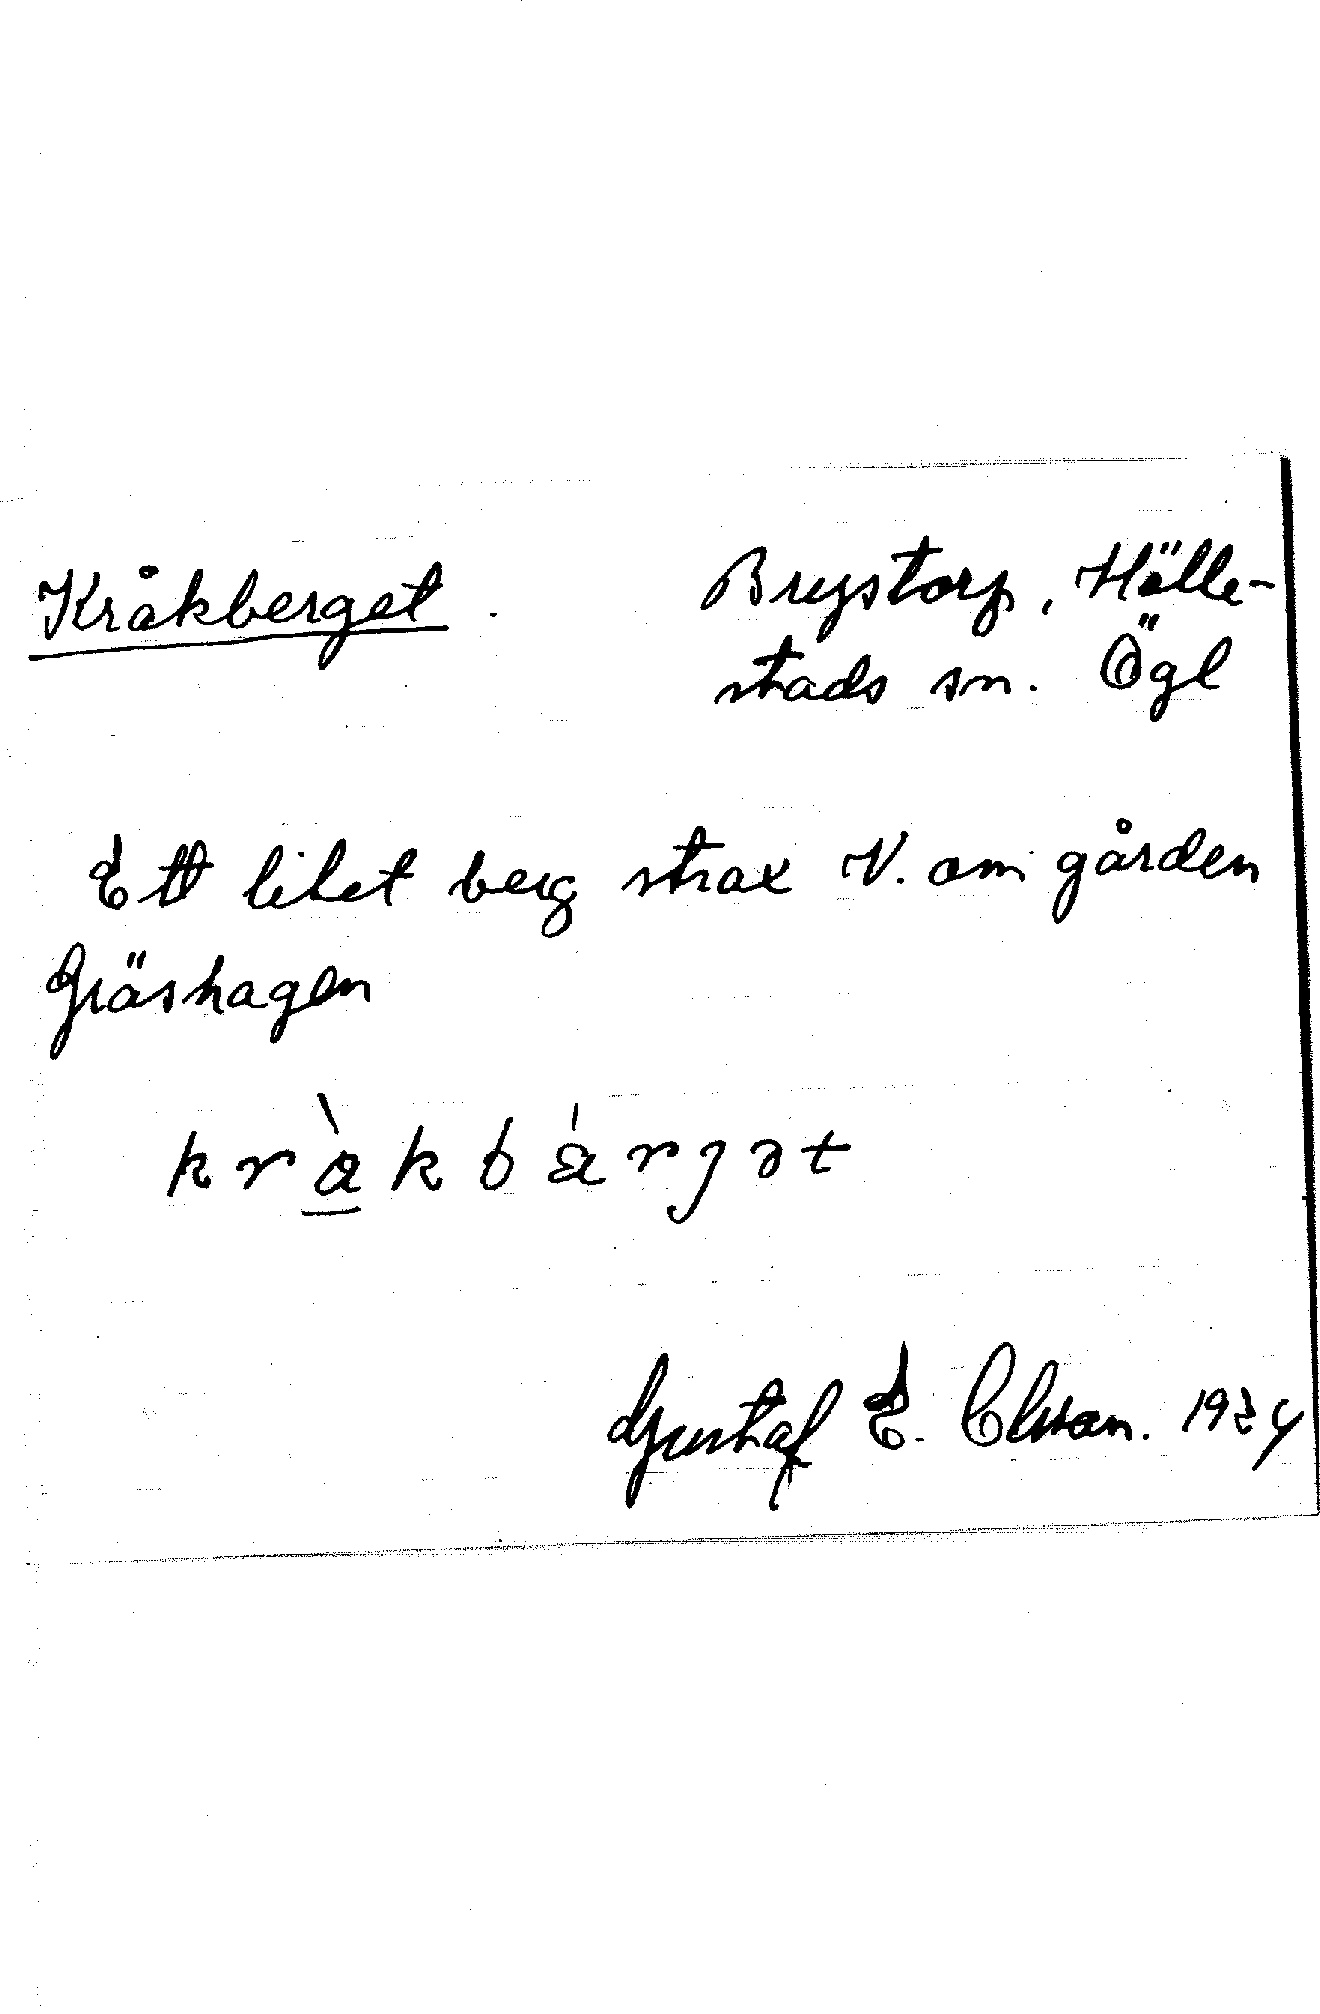 Kråkberget. Brystorp, Hälle-
stads sn. Ögl
Ett litet berg strax V. om gården
Gräshagen
Gustaf E. Olsson. 1924